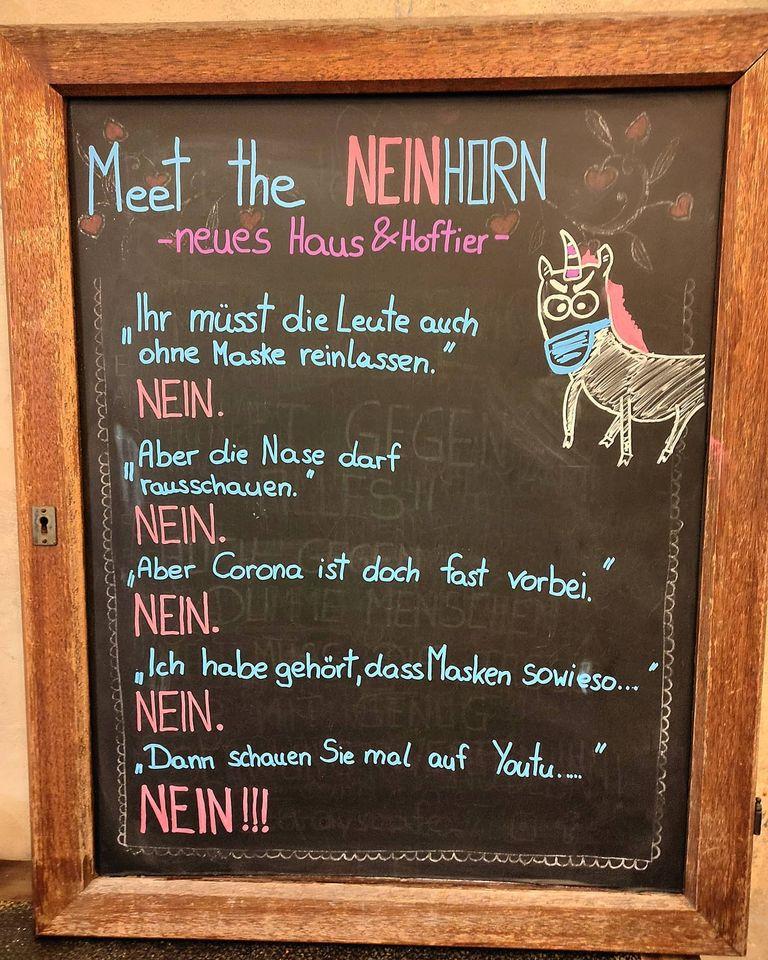 Meet the NEINHORN
-neues Haus & Hoftier-
„Ihr müsst die Leute auch
ohne Maske reinlassen."
NEIN.
„Aber die Nase darf
rausschauen."
NEIN.
„Aber Corona ist doch fast vorbei."
NEIN.
„Ich habe gehört, dass Masken sowieso..."
NEIN.
„Dann schauen Sie mal auf Youtu...."
NEIN!!!